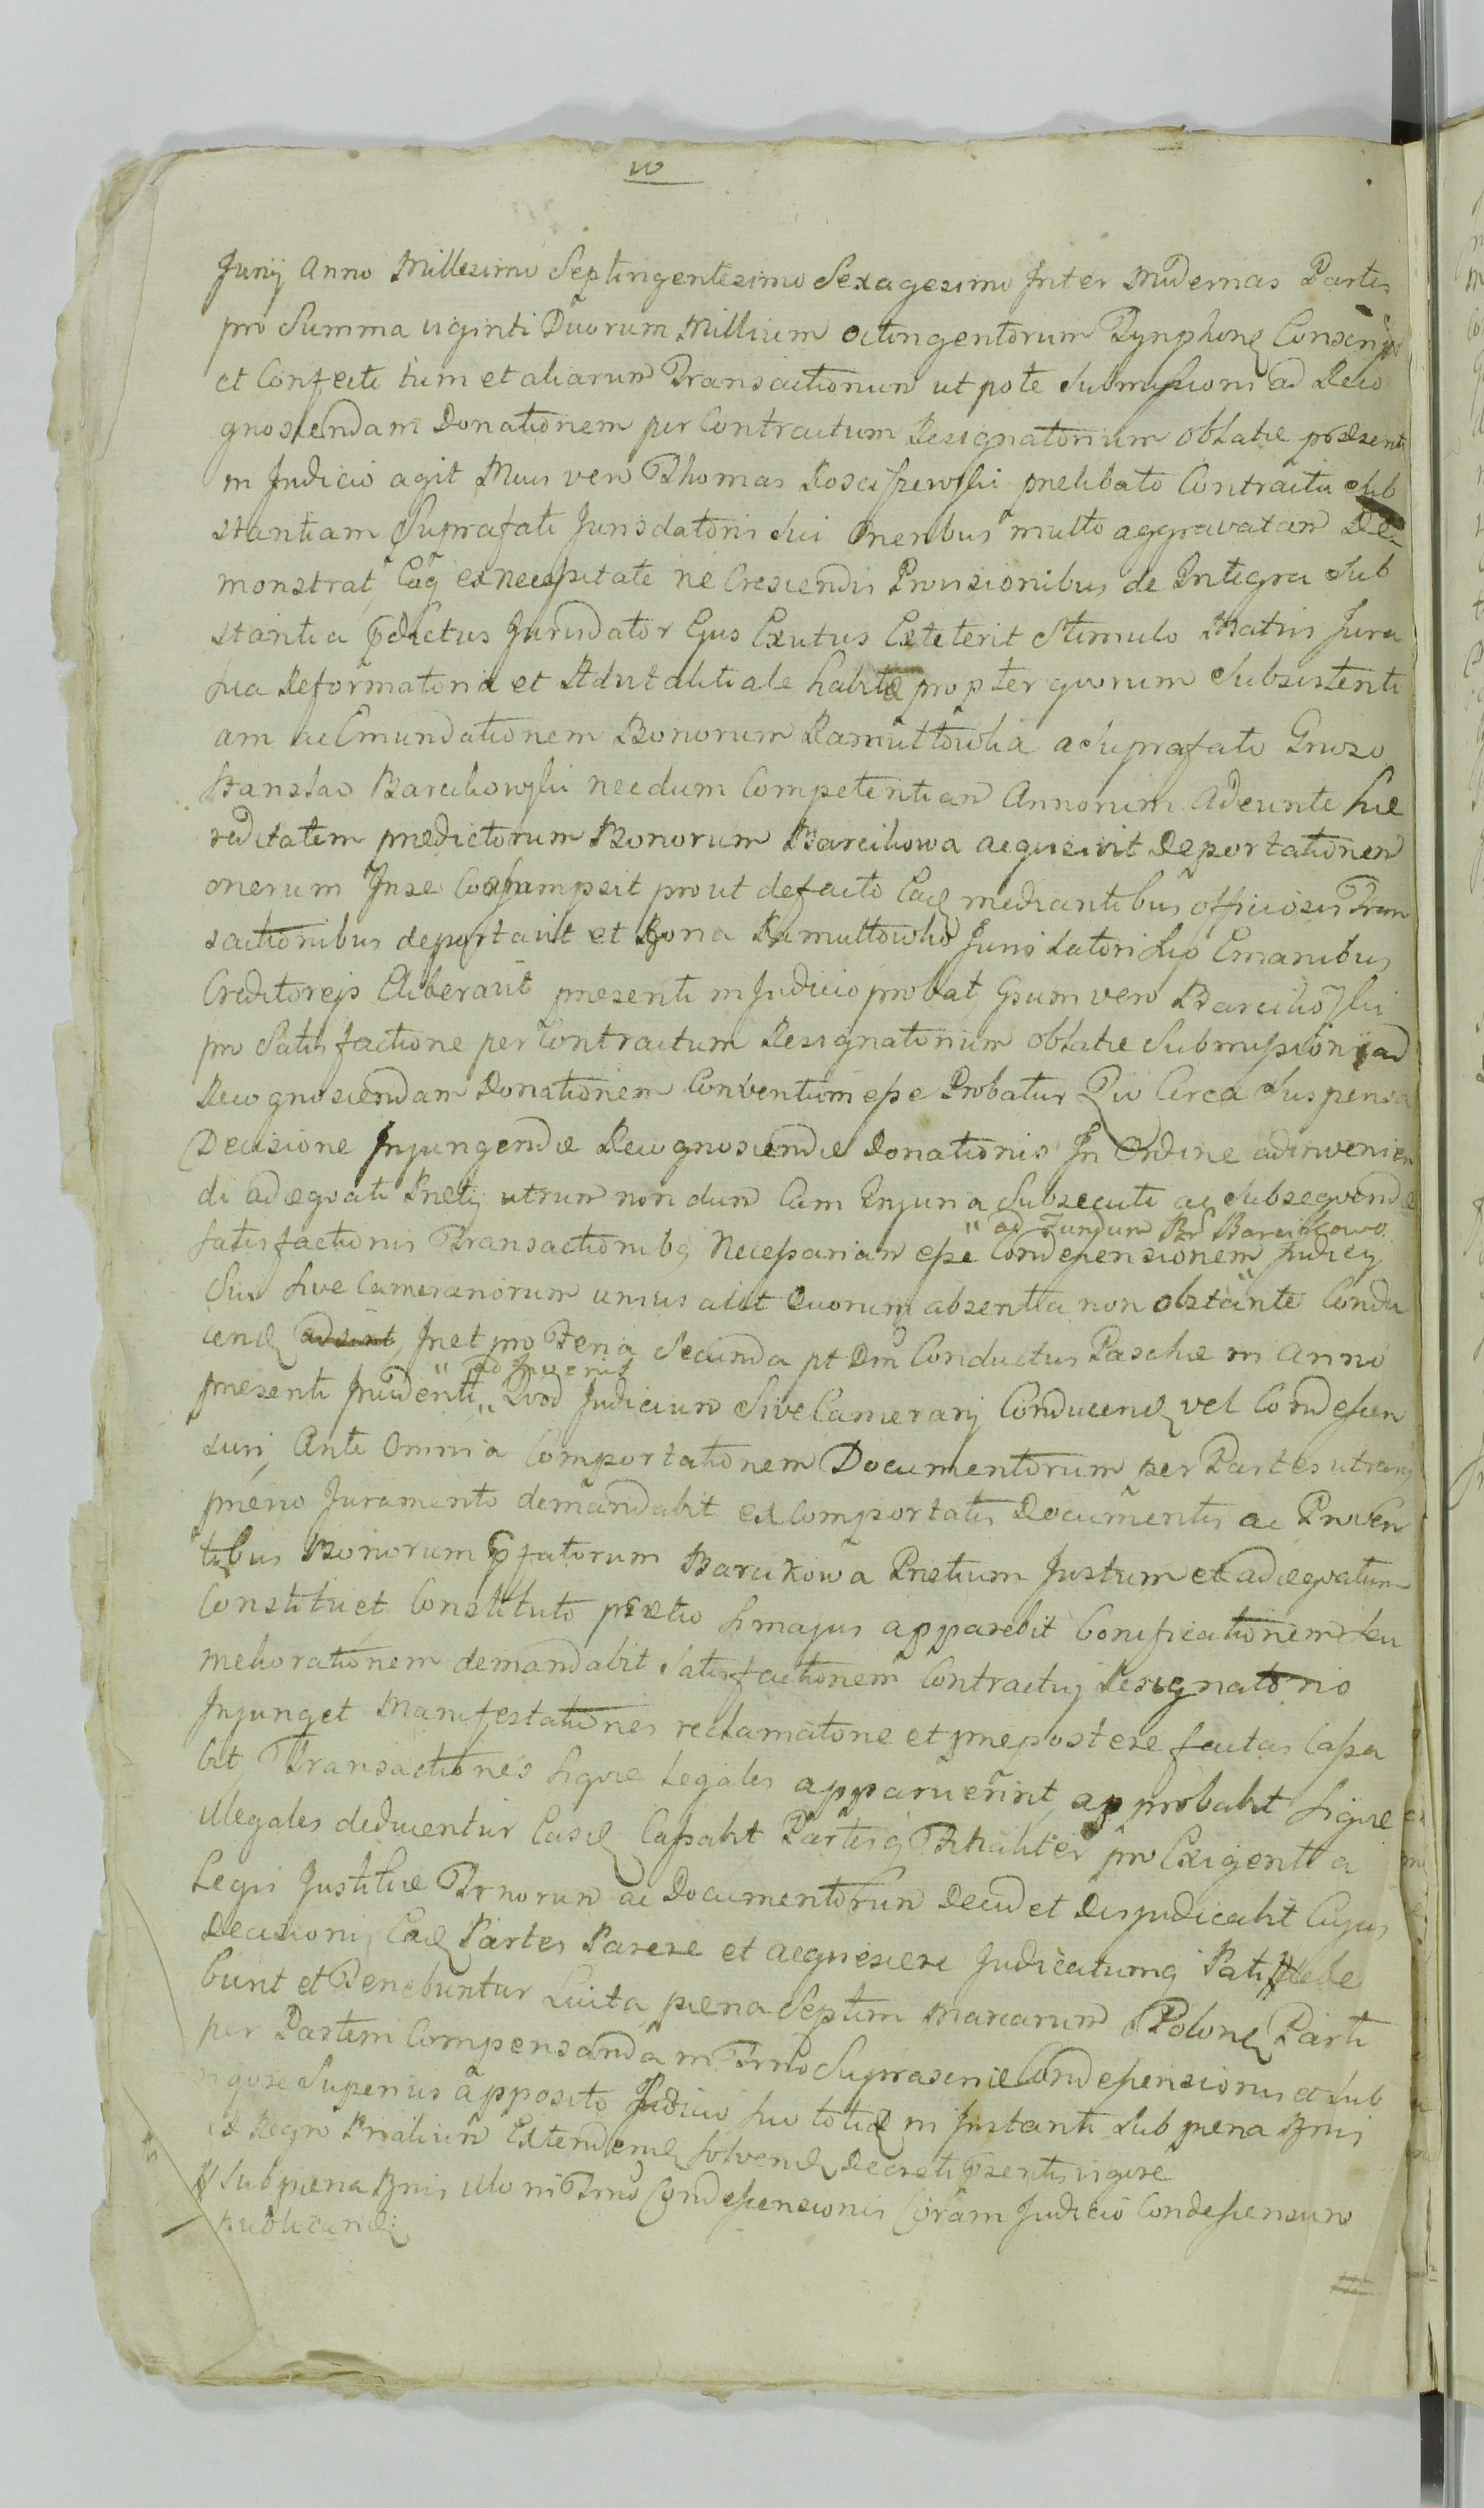 Junij Anno Millesimo Septingentesimo Sexagesimo Inter Modernas Partes
pro Summa viginti Duorum Millium octingentorum Tynphonę Conscripti
et Confecti tum et aliarum Transactionum ut pote Submissioni ad Reco
gnoscendam Donationem per Contractum Resignatorium oblatæ præsenti
in Judicio agit Meus vero Thomas Kosciszewski prælibato Contractu Sub
stantiam Suprafati Jurisdatoris Sui Oneribus multo aggravatam De
monstrat, Eaq ex necessitate ne Crescendis Provisionibus de Integra Sub
stantia Pdictus Jurisdator Ejus Exutus Exteterit Stimulo Matris Jura
sua Reformatoria et Advitalitiale habitæ propter quorum Subsistenti
am ac Emundationem Bonorum Ramultowka a Suprafato Gnoso
Stanslao Barcikowski necdum Competentiam Annorum Adeunte hæ
reditatem prædictorum Bonorum Barcikowa acquisivit Deportationem
onerum In se Consumpsit prout defacto Eadę mediantibus officiosis Tran
sactionibus deportavit et Bona Ramultowko Jurisdatori Suo Emanibus
Creditoris Eliberavit præsenti in Judicio probat, Gsum vero Barcikowski
pro Satisfactione per Contractum Resignatorium oblatæ Submissioni ad
Recognoscendam Donationem Conventum esse Probatur Quo Cerca Suspensa
Decisione Injungendæ Recognoscendæ Donationis In Ordine adinvenien
di adæquati Pretij utrum non dum Cum Injuria Subsecuti ac Subsequendæ
" ad Fundum Br Barcikowo
satisfactionis Transactionibq Necessariam esse Condescensionem Judicij
Sui Sive Camerariorum unius alit Duorum absentia non obstante Condu
cendę adsint, Inet pro Feria Secunda pt Dm Conductus Paschæ in Anno
" Ad Invenit
præsenti Incidenti " Quod Judicium Sive Camerarij Conducendę vel Condescen
suri, Ante Omnia Comportationem Documentorum per Partes utrasq
prævio Juramento demandabit ex Comportatis Documentis ac Proven
tibus Bonorum Pfatorum Barcikowa Pretium Justum et adæquatum
Constituet Constituto prætio si majus apparebit bonificationem seu
meliorationem demandabit Satisfactionem Contractuj Resignatorio
Injunget Manifestationes reclamatorie et præpostere factas Cassa
bit, Transactiones siquæ Legales apparuerint, approbabit Siquæ
illegales deducentur Easdę Cassabit Partesq Ttaliter pro Exigentia
Legis Justitiæ Trnorum ac Documentorum Decid et Disjudicabit Cujus
Decisioni, Eadę Partes Parere et acquiescere Judicatumq Pati # debe
bunt et Tenebuntur Luita pæna Septem Marcarum Polonę Parti
per Partem Compensanda in Trno Suprascriæ Condescensionis et Sub
rigore Superius apposito Judicio suo totidę in Instanti Sub pæna Bnis
ex Regno Pnalium Extendendę Solvendę Decreti Psentis vigore
# Sub pæna Bnis illo in Trno Condescensionis Coram Judicio Condescensuro
publicandę